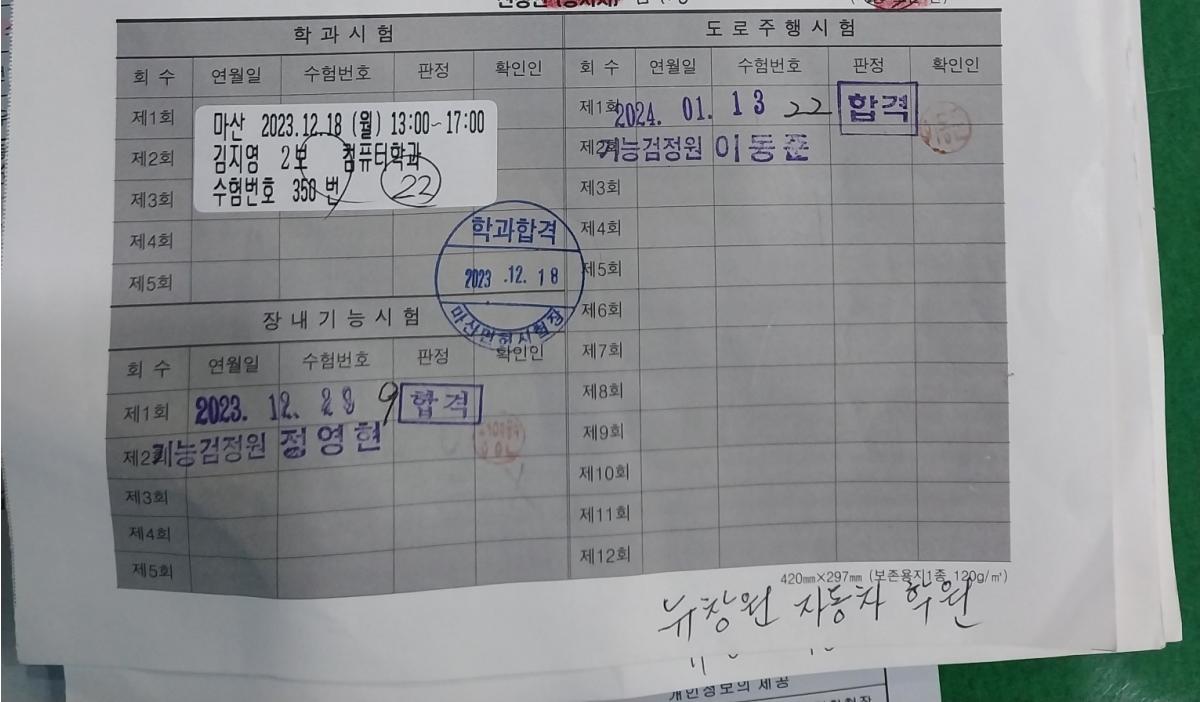 학 과 시 험
회 수 연월일 수험번호 판정 확인인
제1회
제2회
제3회
제4회
제5회
마산 2023.12.18 (월) 13:00~17:00
김지영 2보 컴퓨터학과
수험번호 358 번 22
학과합격
2023 .12. 18
마산면허시험장
장 내 기 능 시 험
회 수 연월일 수험번호 판정 확인인
제1회 2023. 12. 28 9 합격
제2회 기능검정원 정영현
제3회
제4회
제5회
도 로 주 행 시 험
회 수 연월일 수험번호 판정 확인인
제1회 2024. 01. 13 22 합격
제2회 기능검정원 이동준
제3회
제4회
제5회
제6회
제7회
제8회
제9회
제10회
제11회
제12회
420㎜×297㎜ (보존용지1종 120g/㎡)
뉴창원 자동차 학원
개인정보의 제공